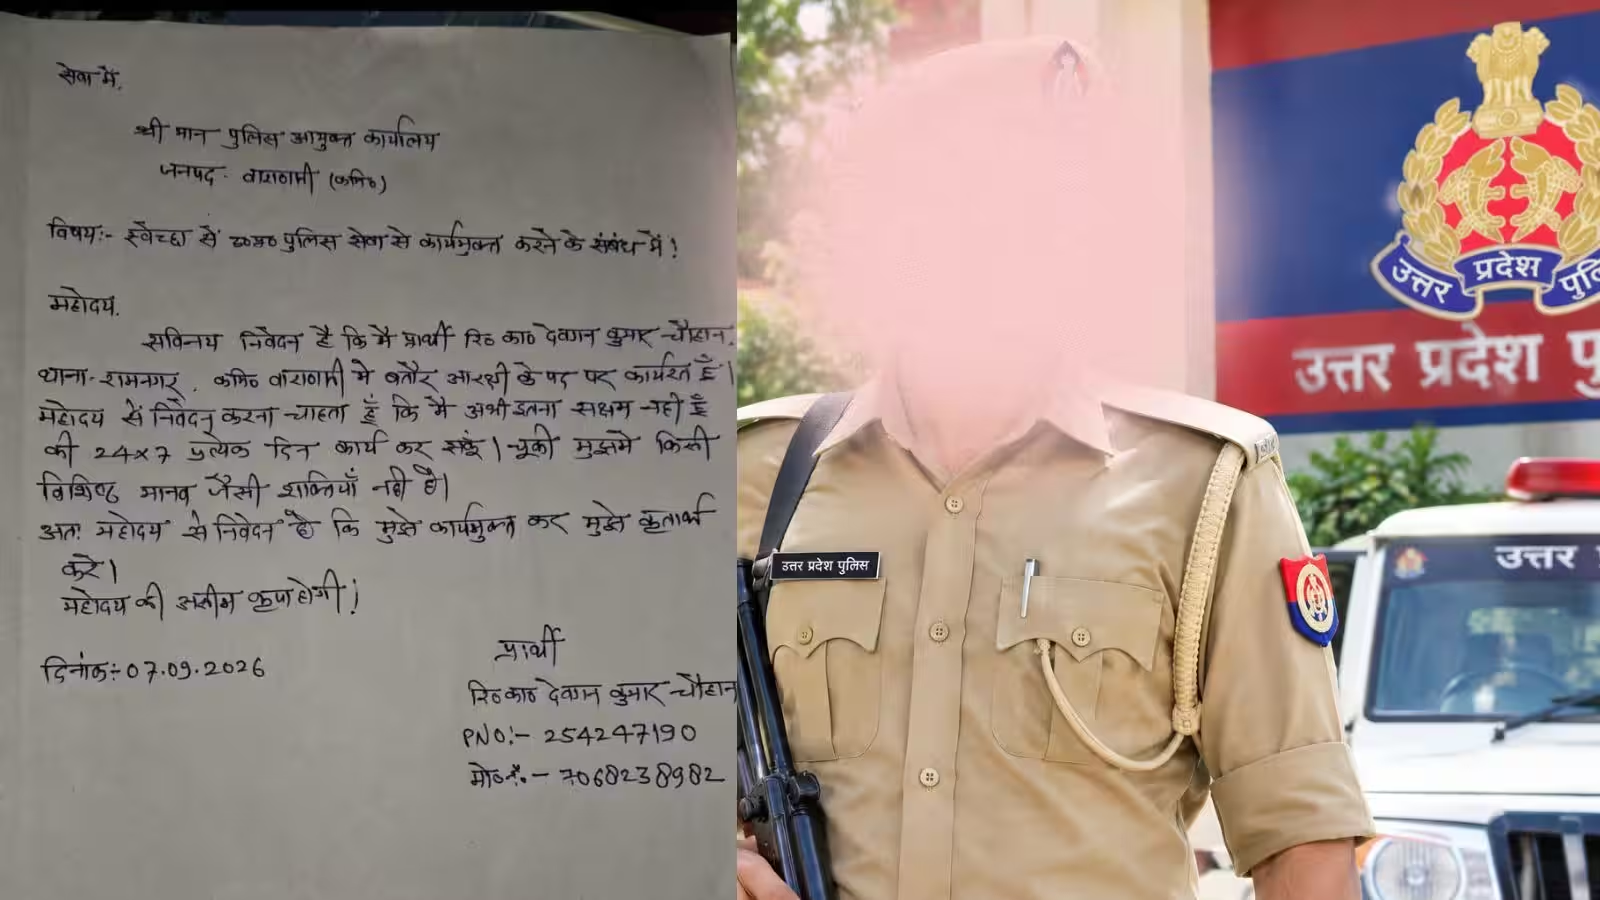 सेवा में,
श्री मान पुलिस आयुक्त कार्यालय
जनपद- वाराणसी (कमि०)
विषय:- स्वेच्छा से उ०प्र० पुलिस सेवा से कार्यमुक्त करने के संबंध में !
महोदय,
सविनय निवेदन है कि मै प्रार्थी रि० का० देवगन कुमार चौहान,
थाना- रामनगर, कमि० वाराणसी मे बतौर आरक्षी के पद पर कार्यरत हूँ।
महोदय से निवेदन करना चाहता हूँ कि मै अभी इतना सक्षम नही हूँ
की 24x7 प्रत्येक दिन कार्य कर सकूं। चूकी मुझमे किसी
विशिष्ट मानव जैसी शक्तियाँ नही है।
अतः महोदय से निवेदन है कि मुझे कार्यमुक्त कर मुझे कृतार्थ
करे।
महोदय की असीम कृपा होगी!
दिनांक:- 07.09.2026
प्रार्थी
रि० का० देवगन कुमार चौहान
PNO:- 254247190
मो० नं. - 7068238982
उत्तर प्रदेश पुलिस
उत्तर प्रदेश पुलि
उत्तर प्रदेश पु
उत्तर